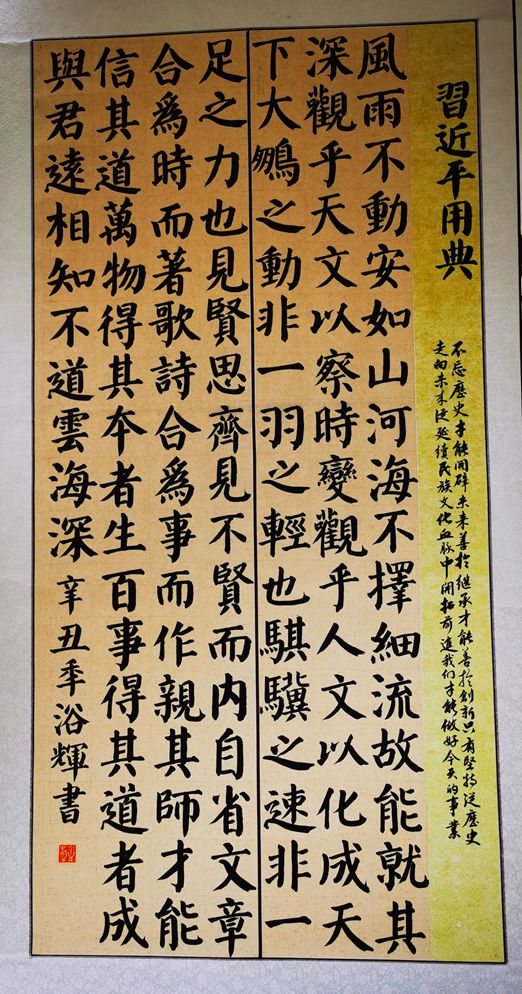 習近平用典
不忘歷史才能開辟未来善扵继承才能善扵創新只有堅持從歷史
走向未来從延續民族文化血脉中開拓前進我们才能做好今天的事業
風雨不動安如山河海不擇細流故能就其
深觀乎天文以察時變觀乎人文以化成天
下大鵬之動非一羽之輕也騏驥之速非一
足之力也見賢思齊見不賢而内自省文章
合爲時而著歌詩合爲事而作親其師才能
信其道萬物得其夲者生百事得其道者成
與君遠相知不道雲海深
辛丑季浴輝書